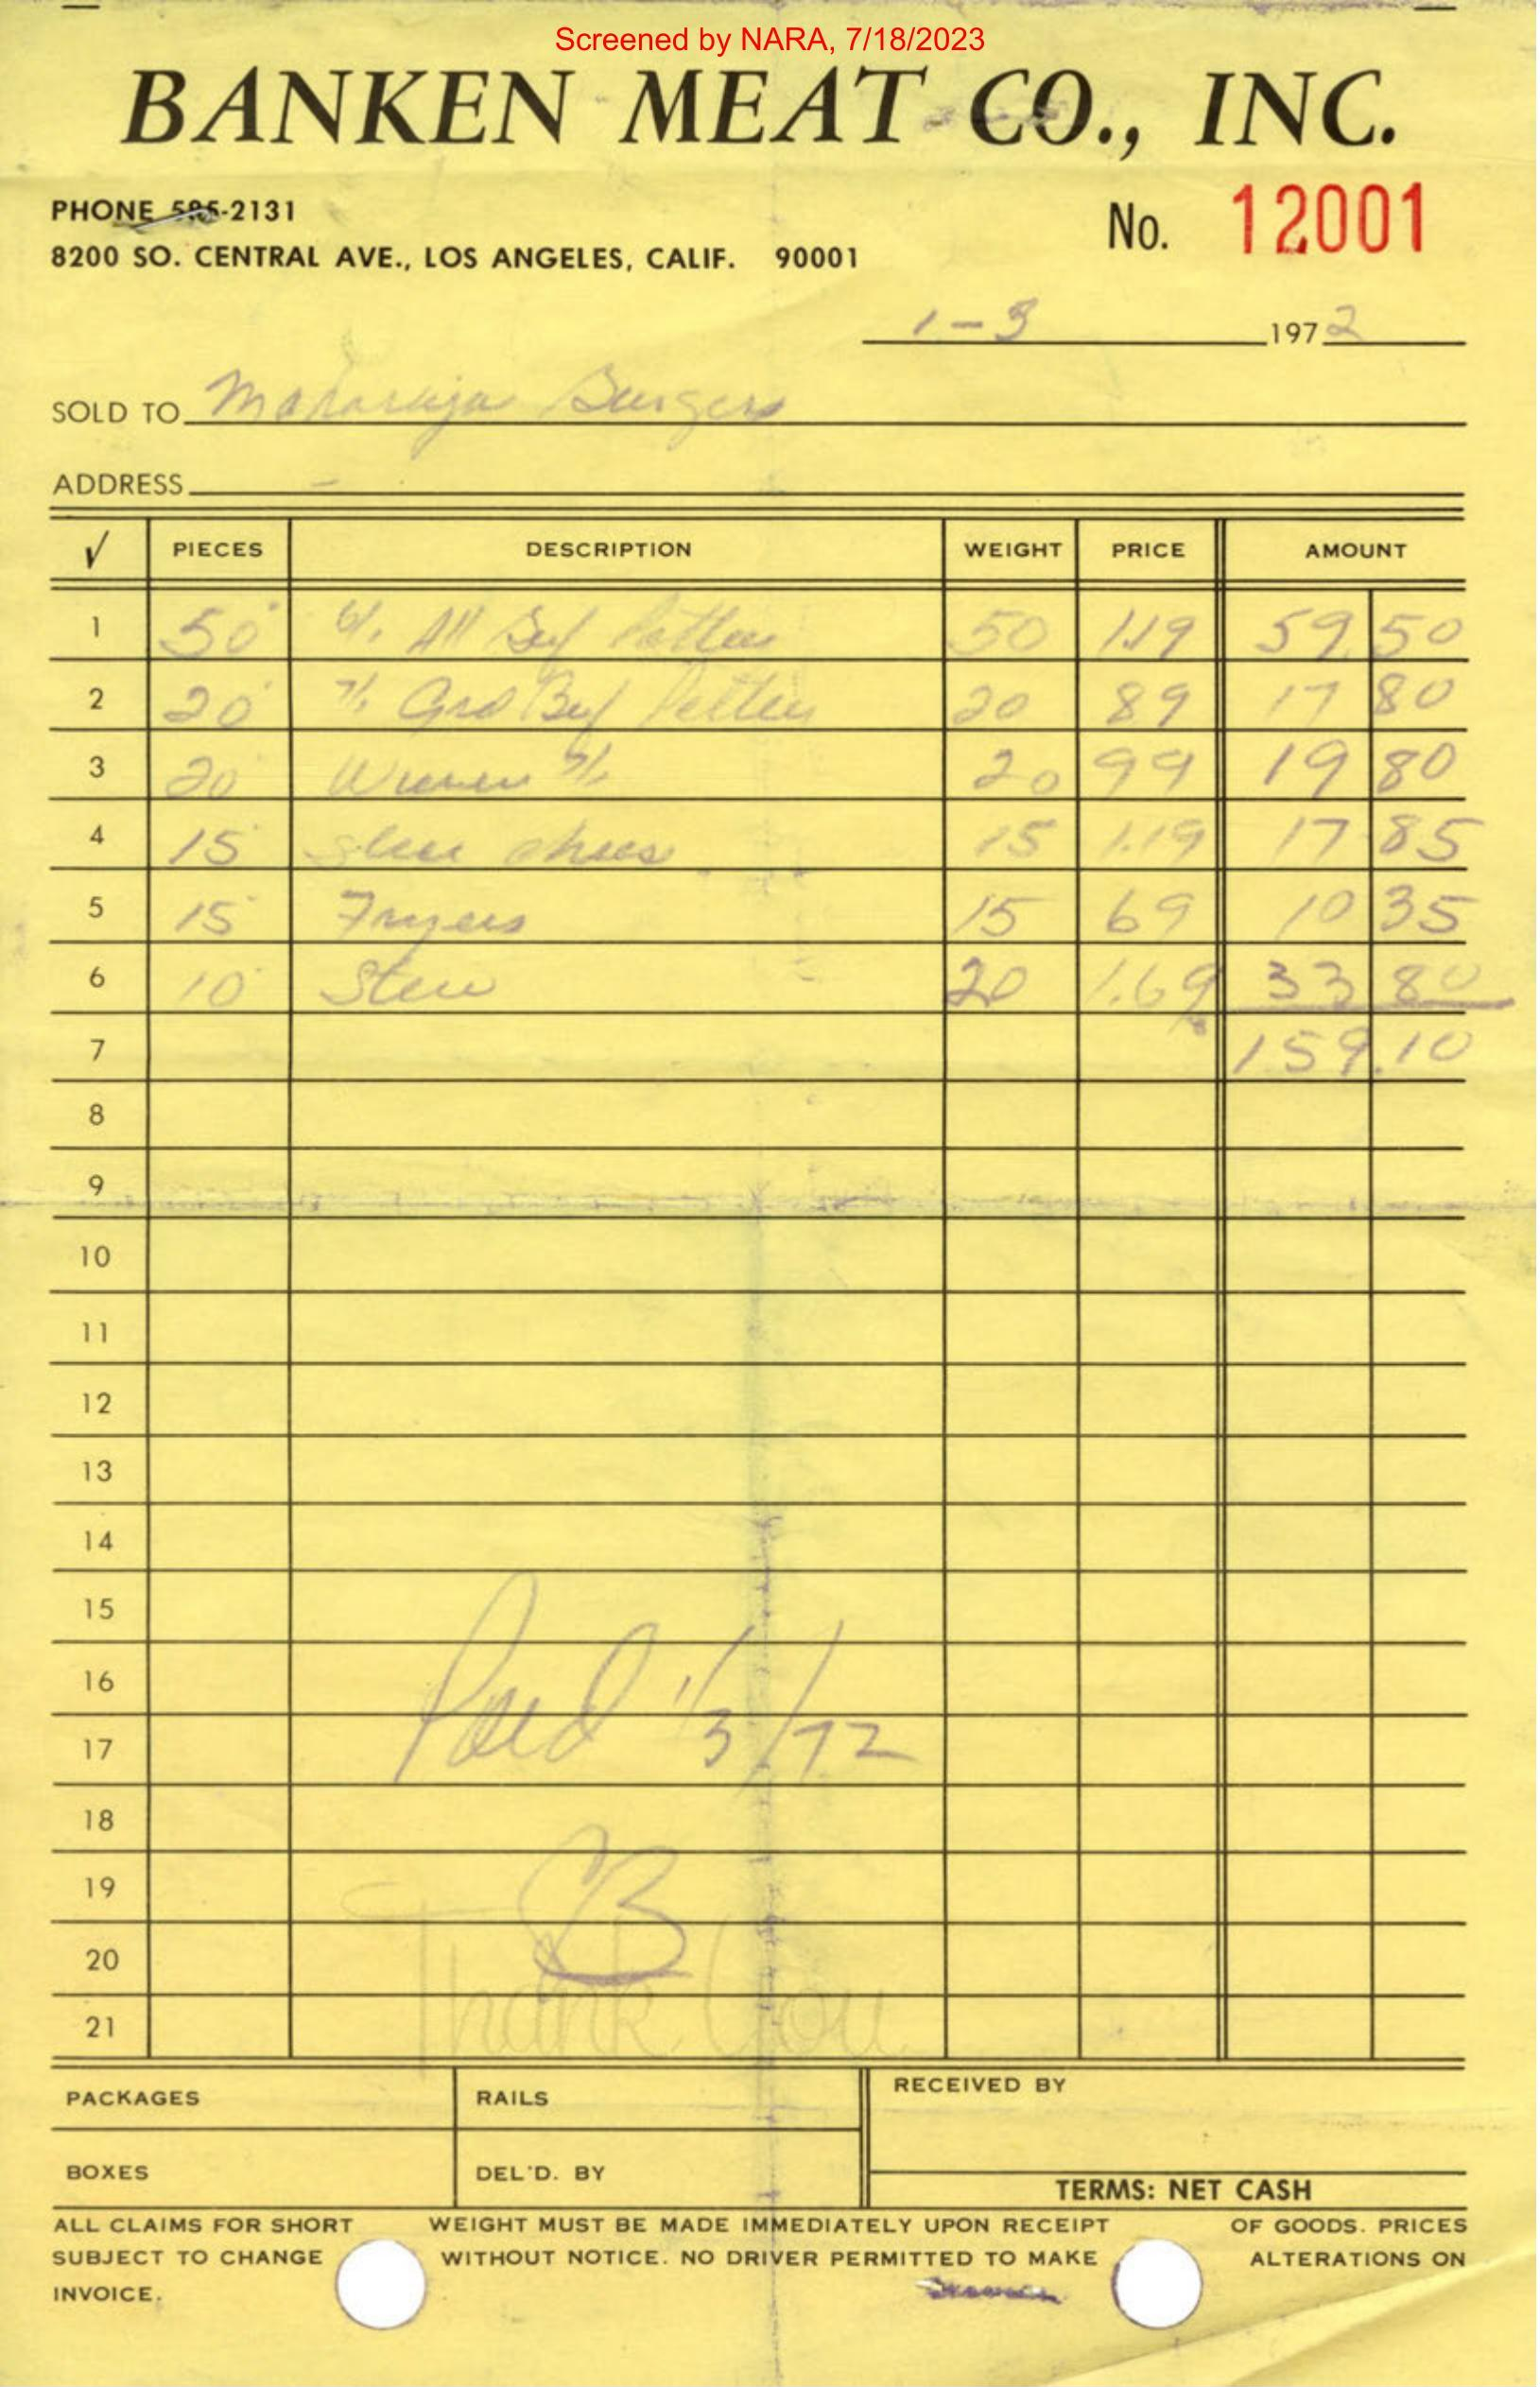 Screened by NARA, 7/18/2023
BANKEN MEAT CO., INC.
PHONE 585-2131
No. 12001
8200 SO. CENTRAL AVE., LOS ANGELES, CALIF. 90001
1-3 1972
SOLD TO Maharaja Burgers
ADDRESS
√ PIECES DESCRIPTION WEIGHT PRICE AMOUNT
1 50 6/1 All Beef Patties 50 1.19 59.50
2 20 7/1 Grd Beef Patties 20 89 17 80
3 20 7/1 20 99 19 80
4 15 15 1.19 17 85
5 15 Fryers 15 69 10 35
6 10 Stew 20 1.69 33 80
7 159.10
8
9
10
11
12
13
14
15
16
17 Paid 1/3/72
18
19 B
20 Thank You
21
PACKAGES RAILS RECEIVED BY
BOXES DEL'D. BY
TERMS: NET CASH
ALL CLAIMS FOR SHORT WEIGHT MUST BE MADE IMMEDIATELY UPON RECEIPT OF GOODS. PRICES
SUBJECT TO CHANGE WITHOUT NOTICE. NO DRIVER PERMITTED TO MAKE ALTERATIONS ON
INVOICE.